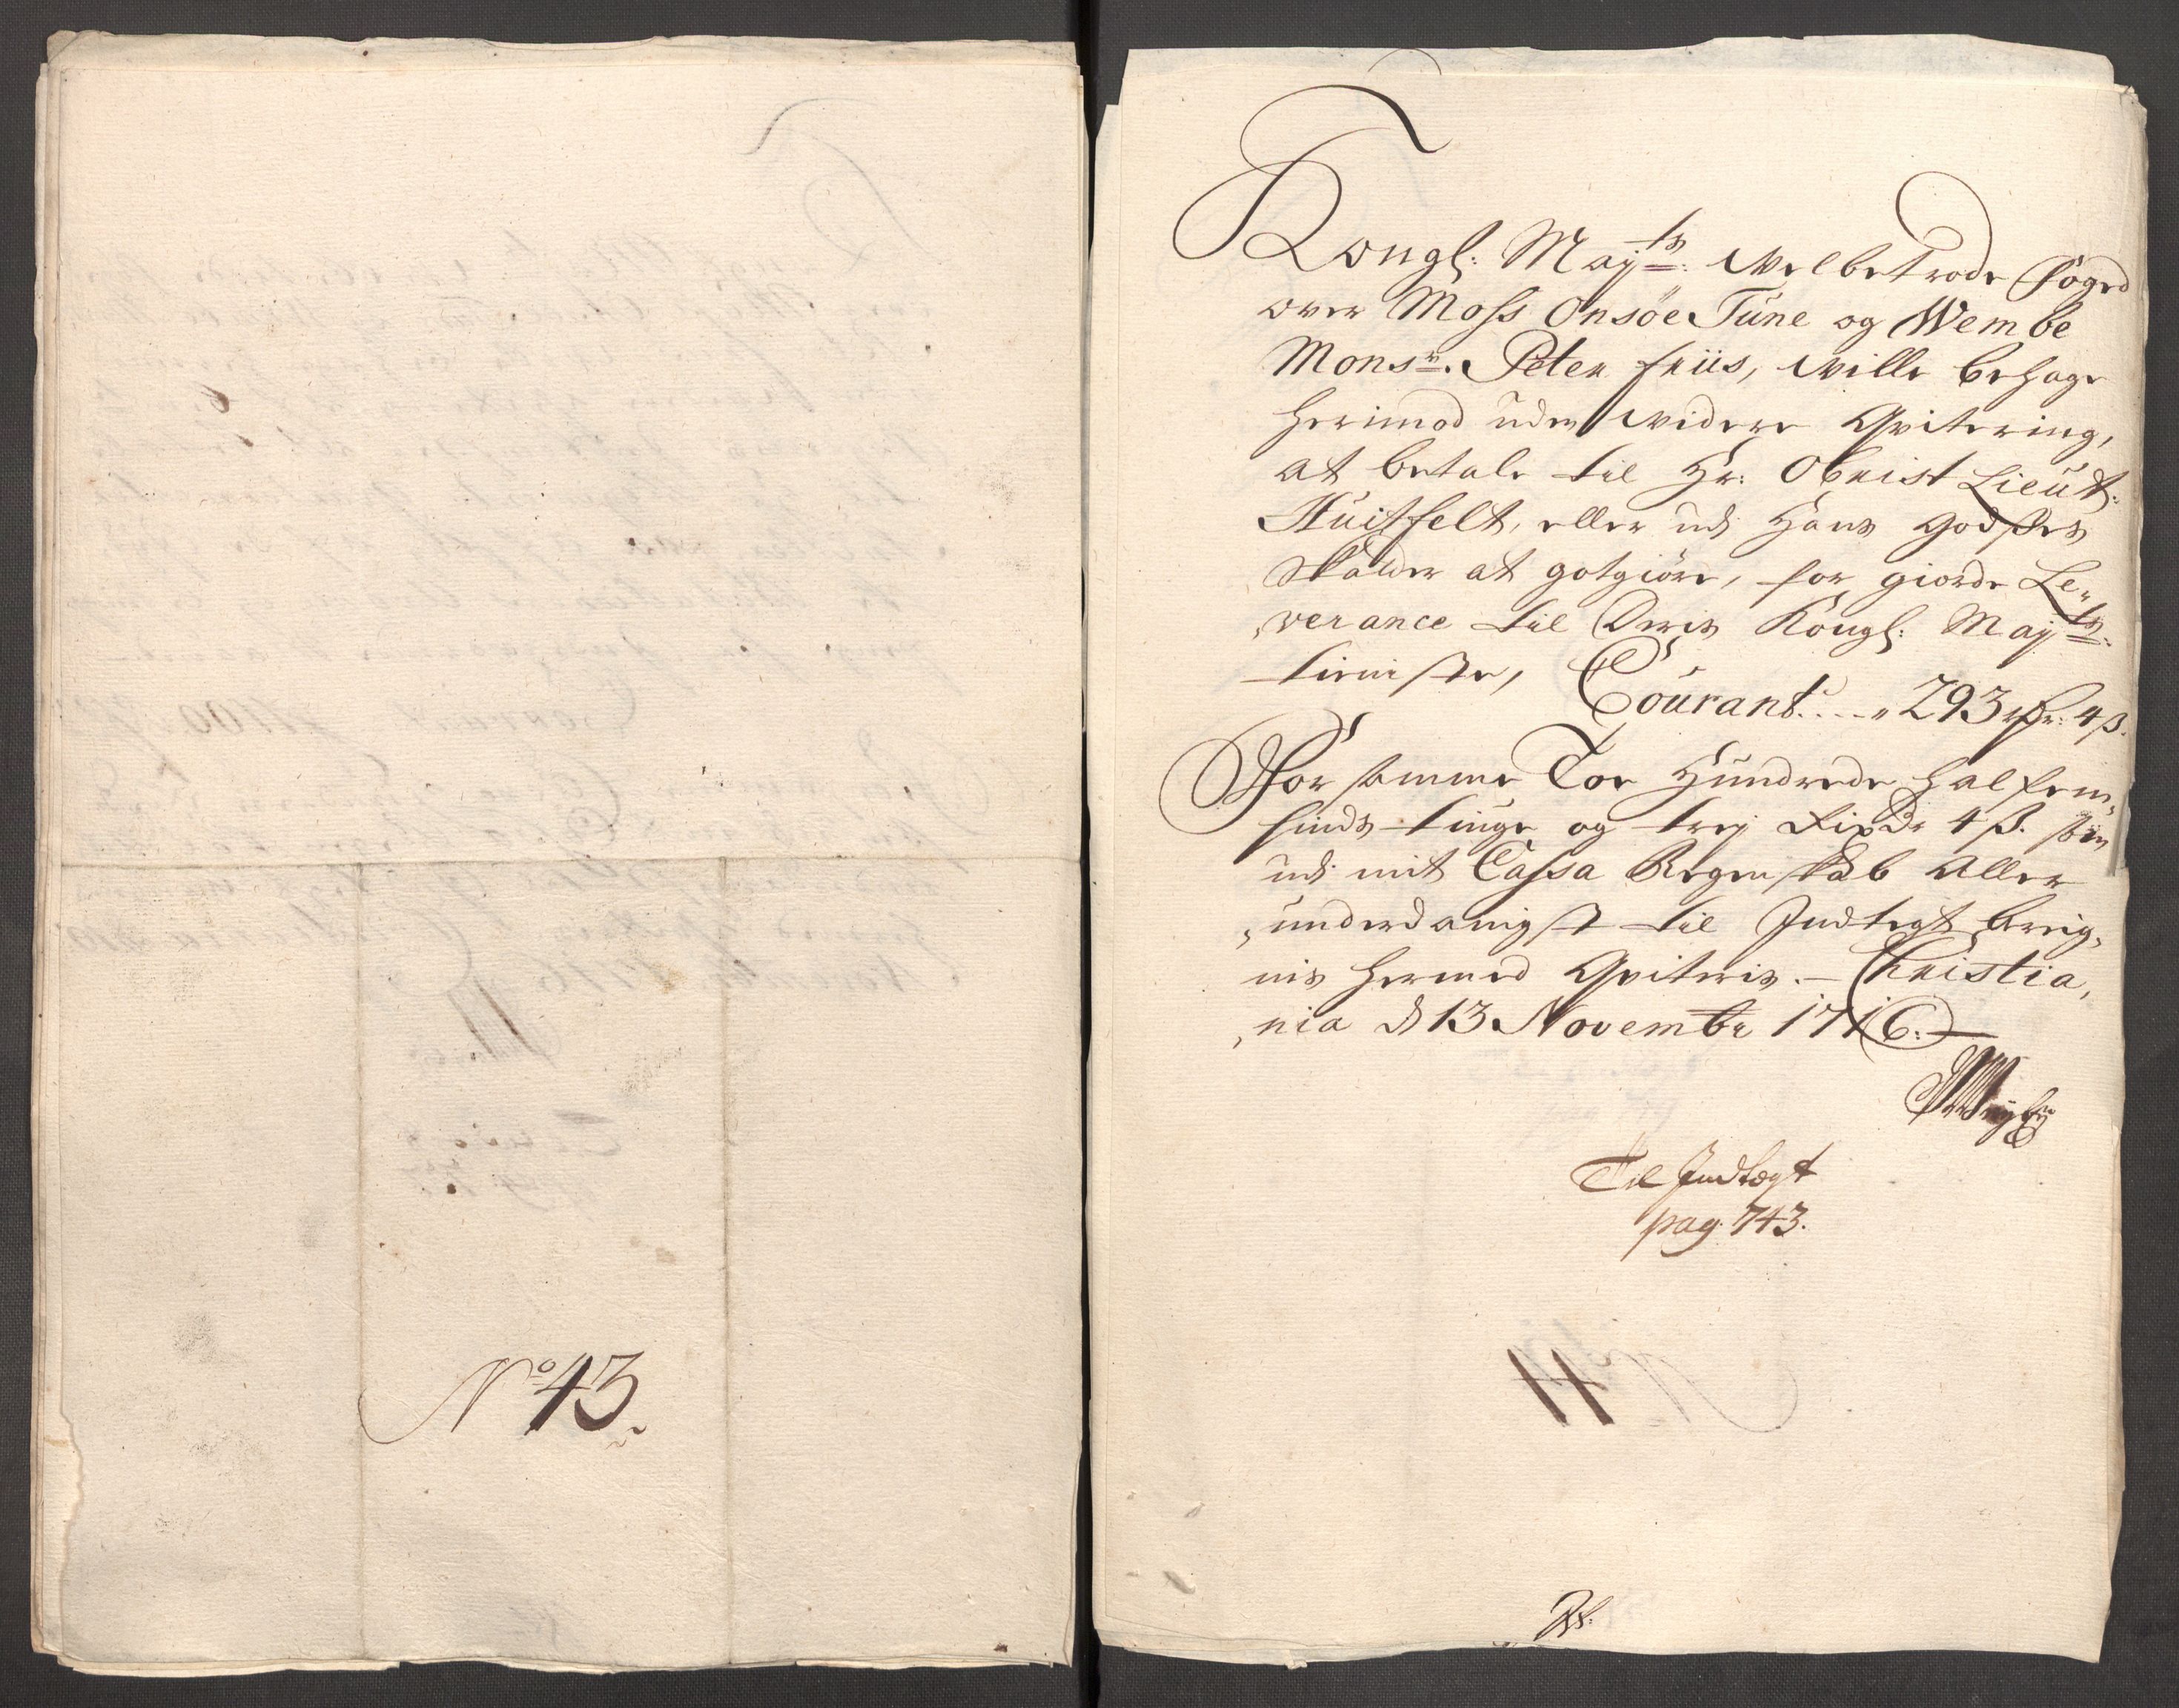 No 43.
Kongl: Maÿts: Welbetrode Foged
over Moss Onsøe Tune og Wembe
Monsr. Peter friis, wille behage
herimod uden widere Qvitering,
at betale til Hr: Obrist Lieut:
Huitfelt, eller udj Hans Godses
Skatter at gotgiøre, for giorde Le-
verance til Deris Kongl: Maÿts:
tieniste, Courant. . . . 293 rdr: 4 ß.
For samme Toe Hundrede halfem-
sinds tiuge og trej Rixdr 4 ß. som
udj mit Cassa Regenskab Aller
underdanigst til Indtegt bereig-
nis hermed Qviteris. - Christia-
nia d 13 Novembr 1716.
Til Indtægt
pag. 743.